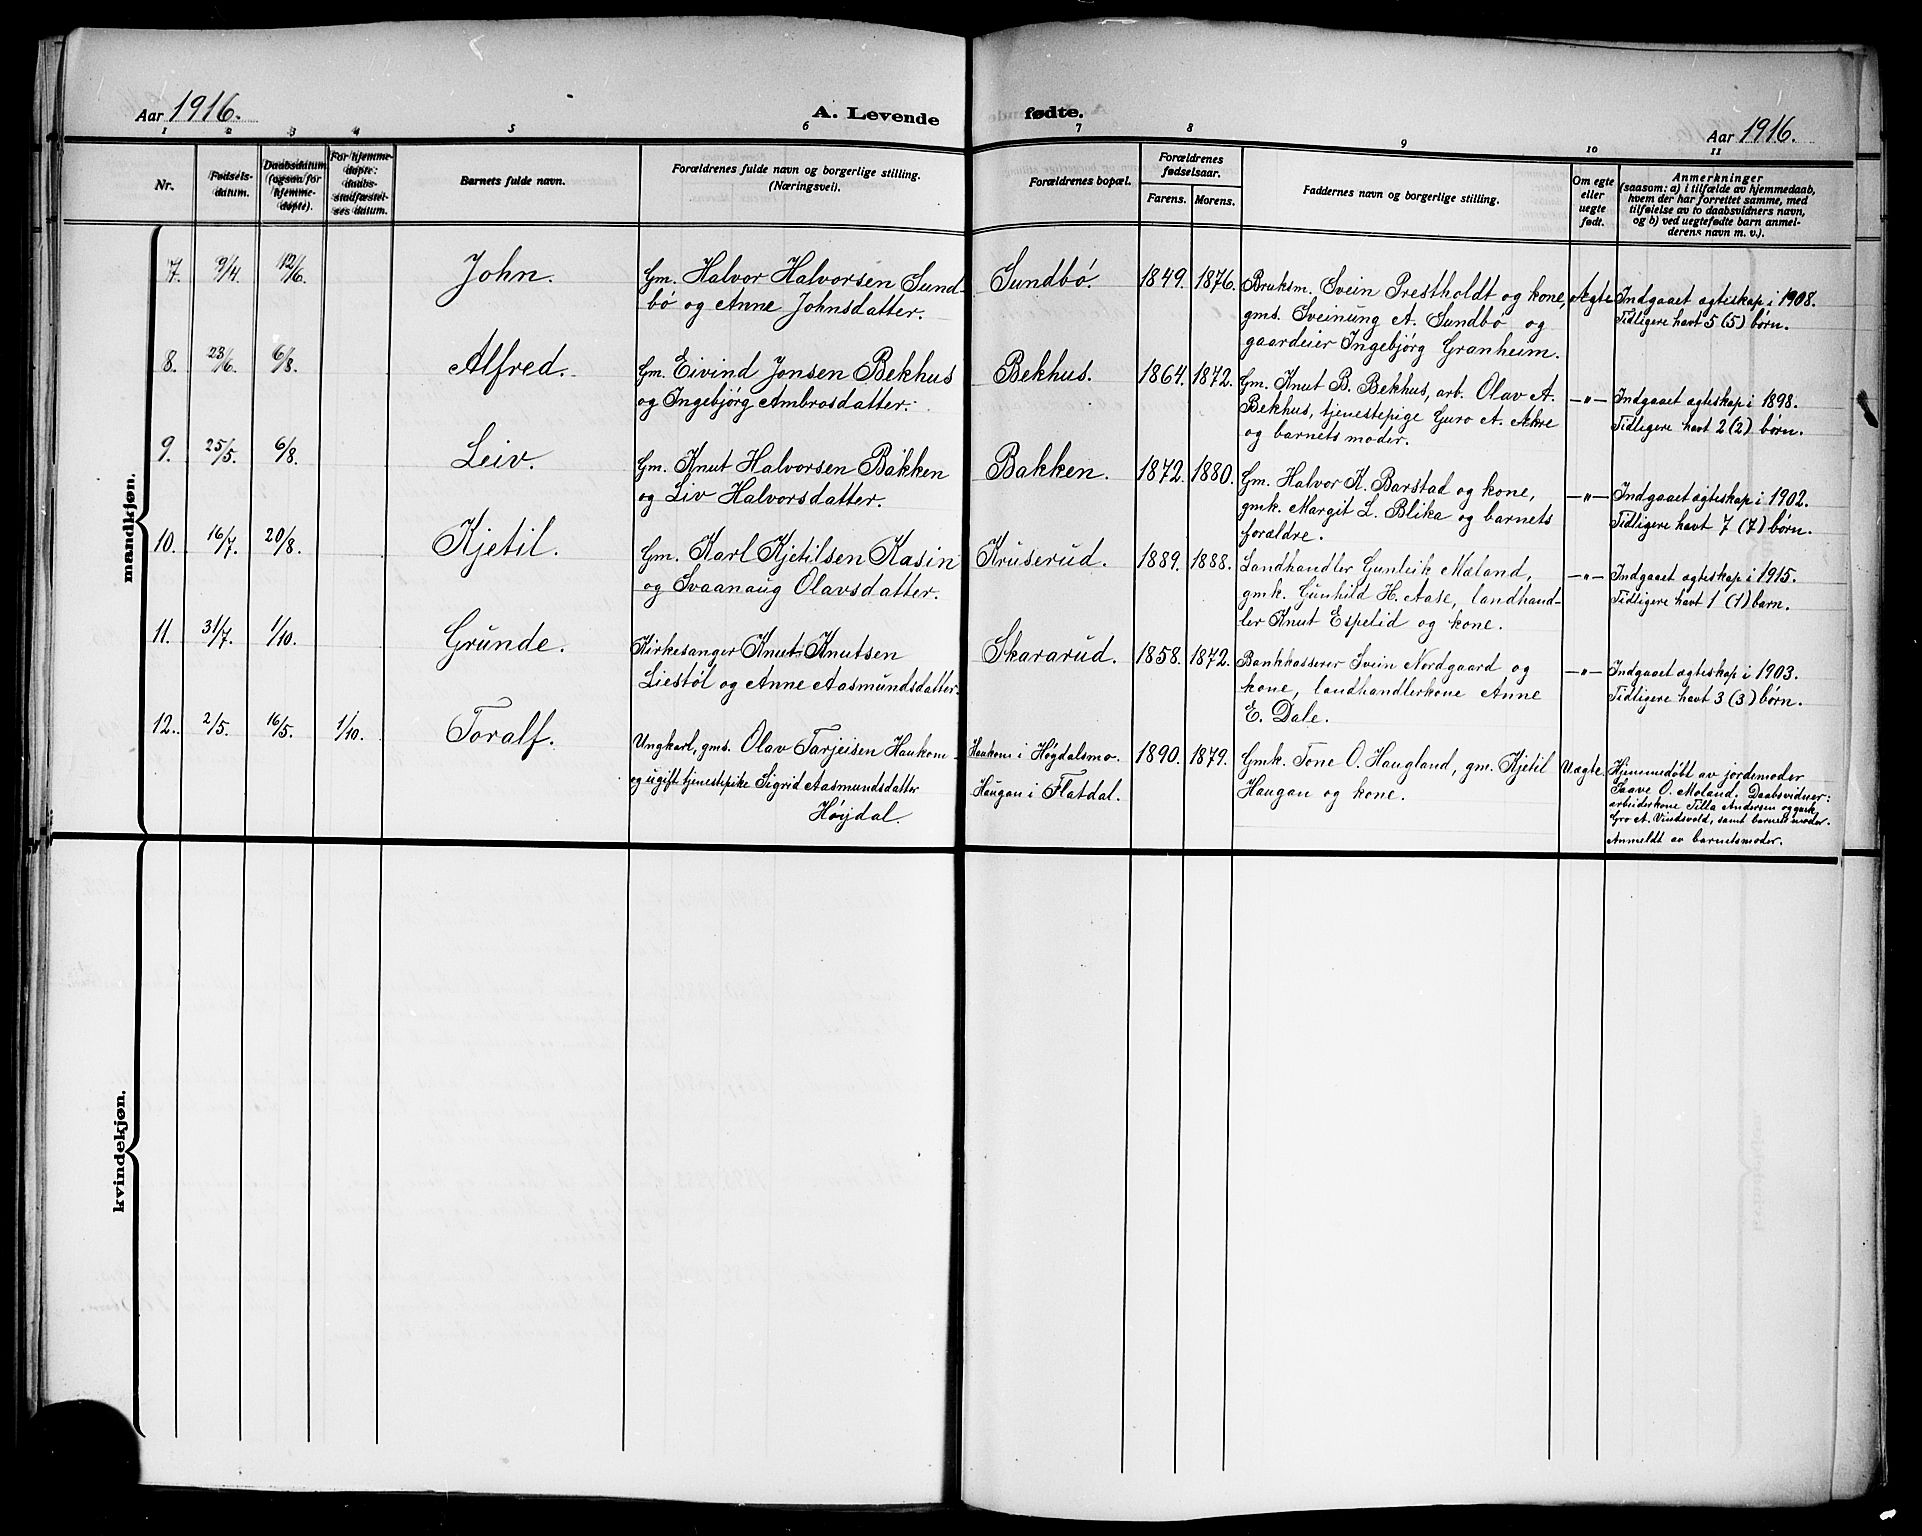 Aar 1916.
A. Levende fødte.
Aar 1916.
1 2 3 4 5 6 7 8 9 10 11
Nr.
Fødsels-
datum.
Daabsdatum
(ogsaa for
hjemme-
døpte).
For hjemme-
døpte:
daabs-
stadfæstel-
ses datum.
Barnets fulde navn.
Forældrenes fulde navn og borgerlige stilling.
(Næringsvei).
Forældrenes bopæl.
Forældrenes
fødselsaar.
Farens. Morens.
Faddernes navn og borgerlige stilling.
Om egte
eller
uegte
født.
Anmerkninger
(saasom: a) i tilfælde av hjemmedaab,
hvem der har forrettet samme, med
tilføielse av to daabsvidners navn,
og b) ved uegtefødte barn anmel-
derens navn m. v.).
mandkjøn.
7. 9/4. 12/6. John.
Gm. Halvor Halvorsen Sund-
bø og Anne Johnsdatter.
Sundbø. 1849. 1876.
Bruksm. Svein Prestholdt og kone,
gms. Sveinung A. Sundbø og
gaardeier Ingebjørg Granheim.
Ægte
Indgaaet ægteskap i 1908.
Tidligere havt 5 (5) børn.
8. 23/6. 6/8. Alfred.
Gm. Eivind Jonsen Bekhus
og Ingebjørg Ambrosdatter.
Bekhus. 1864. 1872.
Gm. Knut B. Bekhus, arb. Olav A.
Bekhus, tjenestepige Guro A. Akre
og barnets moder.
—"—
Indgaaet ægteskap i 1898.
Tidligere havt 2 (2) børn.
9. 25/5. 6/8. Leiv.
Gm. Knut Halvorsen Bakken
og Liv Halvorsdatter.
Bakken. 1872. 1880.
Gm. Halvor K. Barstad og kone,
gmk. Margit L. Blika og barnets
forældre.
—"—
Indgaaet ægteskap i 1902.
Tidligere havt 7 (7) børn.
10. 16/7. 20/8. Kjetil.
Gm. Karl Kjetilsen Kasin
og Svaanaug Olavsdatter.
Kruserud. 1889. 1888.
Landhandler Gunleik Mæland,
gmk. Gunhild H. Aase, landhand-
ler Knut Espelid og kone.
—"—
Indgaaet ægteskap i 1915.
Tidligere havt 1 (1) barn.
11. 31/7. 1/10. Grunde.
Kirkesanger Knut Knutsen
Liestøl og Anne Aasmundsdatter.
Skararud. 1858. 1872.
Bankkasserer Svein Nordgaard og
kone, landhandlerkone Anne
E. Dale.
—"—
Indgaaet ægteskap i 1903.
Tidligere havt 3 (3) børn.
12. 2/5. 16/5. 1/10. Toralf.
Ungkarl, gms. Olav Tarjeisen Haukom
og ugift tjenestepike Sigrid Aasmundsdatter
Høydal.
Haukom i Høydalsmo.
Haugan i Flatdal.
1890. 1879.
Gmk. Tone O. Haugland, gm. Kjetil
Haugan og kone.
Uægte
Hjemmedøbt av jordemoder
Saave O. Moland. Daabsvidner:
arbeiderkone Tilla Andersen og gmk.
Gro A. Vindsvold, samt barnets moder.
Anmeldt av barnets moder.
kvindekjøn.